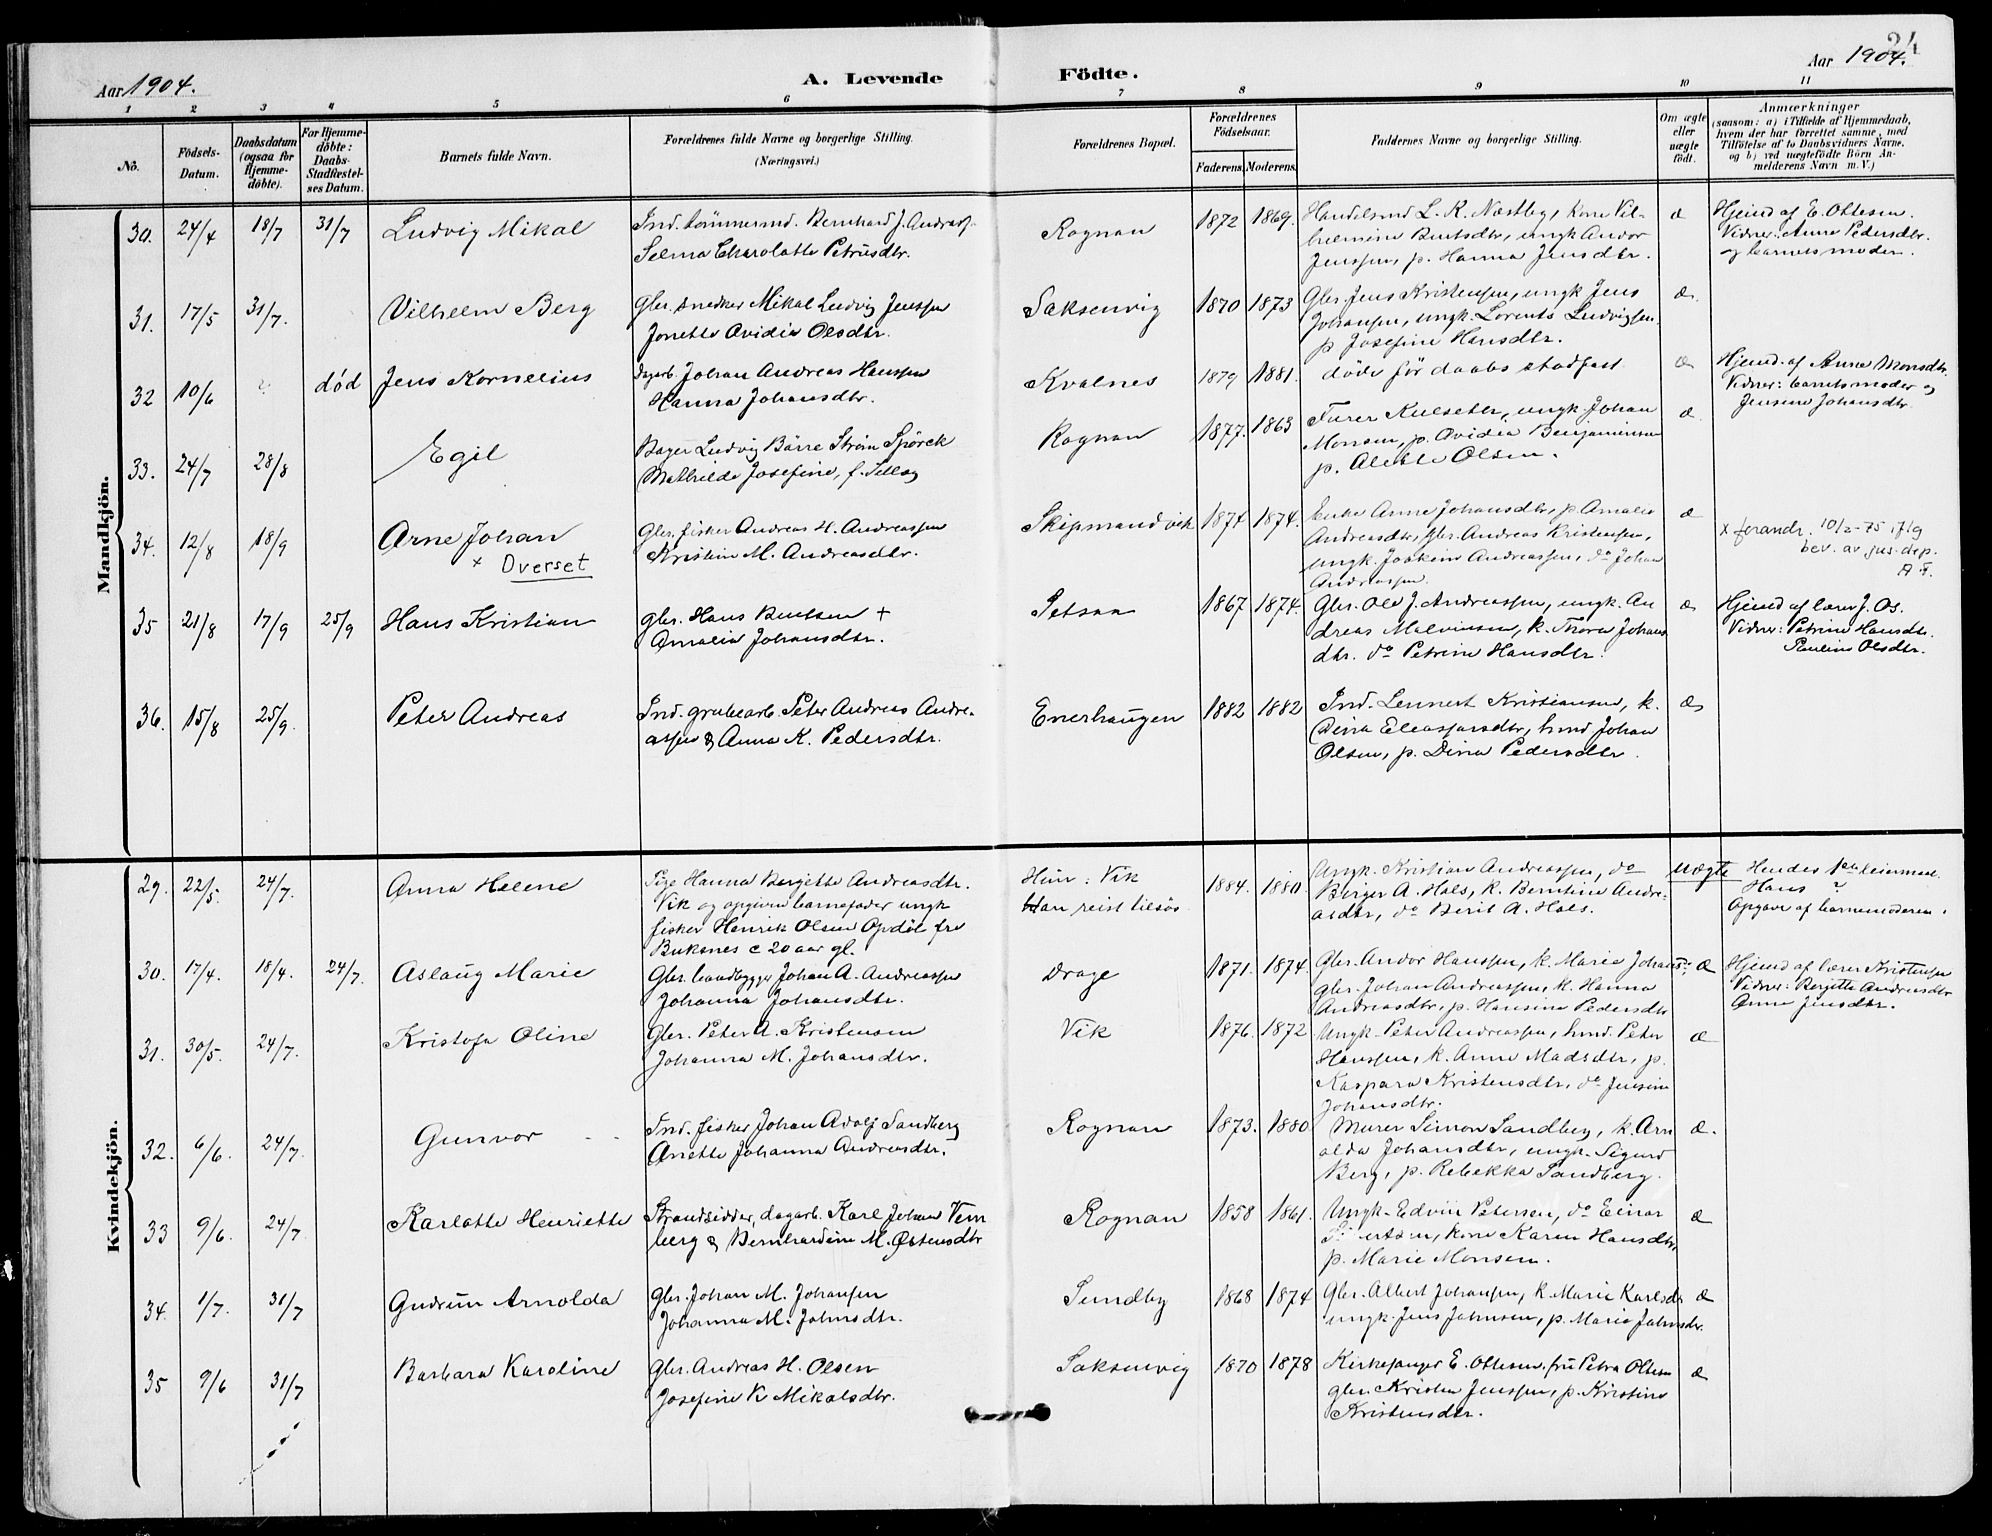 24
Aar 1904.
A. Levende Födte.
Aar 1904.
1 2 3 4 5 6 7 8 9 10 11
No.
Födsels-Datum.
Daabsdatum (ogsaa for Hjemme-döbte).
For Hjemme-döbte: Daabs-Stadfæstel-ses Datum.
Barnets fulde Navn.
Forældrenes fulde Navne og borgerlige Stilling.
(Næringsvei.)
Forældrenes Bopæl.
Forældrenes Födselsaar.
Faderens. Moderens.
Faddernes Navne og borgerlige Stilling.
Om ægte eller uægte födt.
Anmærkninger
(saasom: a) i Tilfælde af Hjemmedaab,
hvem der har forrettet samme, med
Tilföielse af to Daabsvidners Navne,
og b) ved uægtefödte Börn An-
melderens Navn m. V.)
Mandkjön.
30. 24/4 18/7 31/7 Ludvig Mikal
Ind. tömmermd. Bernhard J. Andreass.
Selma Charolatte Petrusdtr.
Rognan 1872 1869.
Handelsmd L. K. Næstby, kone Vil-
helmine Bentsdtr, ungk Andor
Jenssen, p. Hanna Jensdtr.
æ
Hjemd af E. Ottesen.
Vidner: Anne Pedersdtr.
og barnets moder.
31. 17/5 31/7. Vilhelm Berg
Gbr. snedker Mikal Ludvig Jenssen
Jonette Ovidia Olsdtr.
Saksenvig 1870 1873
Gbr Jens Kristensen, ungk Jens
Johansen, ungk. Lorents Ludvigsen.
p Josefine Hansdtr.
æ
32 10/6 død Jens Kornelius
Dagarb. Johan Andreas Hanssen
Hanna Johansdtr.
Kvalnes 1879 1881.
døde før daabs stadfæst.
æ
Hjemd. af Anne Monsdtr.
Vidner: barnets moder og
Jensine Johansdtr.
33. 24/7 28/8 Egil
Bager Ludvig Börre Ström Spörck
Mathilde Josefine, f. Selboe
Rognan 1877. 1863
Furer Kulseter, ungk. Johan
Monsen, p. Ovidia Benjaminsen
p. Alette Olsen.
æ
34. 12/8 18/9 Arne Johan
x Overset
Gbr. fisker Andreas H. Andreassen
Kristine M. Andreasdtr.
Skipmandvik 1874 1874.
Enke Anne Johansdtr, p Amalie
Andreasdtr, gbr. Andreas Kristensen,
ungk. Joakim Andreassen, do Johan
Andreassen.
æ
x forandr. 10/2-75 iflg
bev. av jus. dep.
A F.
35 21/8 17/9 25/9 Hans Kristian
gbr. Hans Bentsen +
Amalia Johansdtr.
Setsaa 1867 1874.
Gbr. Ole J. Andreassen, ungk. An
dreas Malvinsen, k. Thora Johans
dtr. do Petrine Hansdtr.
æ
Hjemd af lærer J. Os.
Vidner: Petrine Hansdtr.
Pauline Olsdtr.
36. 15/8 25/9. Peter Andreas
Ind. grubearb. Peter Andreas Andre-
assen & Anna K. Pedersdtr.
Enerhaugen 1882 1882
Ind. Lennert Kristiansen, k.
Dina Eleasarsdtr, hmd Johan
Olsen, p. Dina Pedersdtr.
æ
Kvindekjön.
29. 22/5 24/7. Anna Helene
Pige Hanna Bergette Andreasdtr.
Vik og opgiven barnefader ungk
fisker Henrik Olsen Opdöl fra
Buksnes c 20 aar gl.
Hun: Vik
Han reist tilsös.
1884. 1880.
Ungk. Kristian Andreassen, do
Birger A. Hals, k. Berntine Andre-
asdtr, do Berit A. Hals.
uægte
Hendes 1ste leiermaal.
Hans ?
Opgave af barnemoderen.
30. 17/4. 18/4. 24/7. Aslaug Marie
Gbr. baadbygger Johan A. Andreassen
Johanna Johansdtr.
Drage 1871. 1874.
Gbr. Andor Hanssen, k. Marie Johans:
gbr. Johan Andreassen, k. Hanna
Andreasdtr, p. Hansine Pedersdtr
æ
Hjemd af lærer Kristensen
Vidner: Bergette Andreasdtr
Anne Jensdtr.
31. 30/5. 24/7. Kristofa Oline
Gbr. Peter A. Kristensen
Johanna M. Johansdtr.
Vik 1876. 1872
Ungk. Peter Andreassen, hmd. Peter
Hanssen, k. Anne Madsdtr, p.
Kaspara Kristensdtr, do Jensine
Johansdtr.
æ
32. 6/6. 24/7. Gunvor
Ind. fisker Johan Adolf Sandberg
Anette Johanna Andreasdtr.
Rognan 1873. 1880
Murer Simon Sandberg, k. Arn
alda Johansdtr, ungk. Sigurd
Berg, p. Rebekka Sandberg.
æ.
33 9/6. 24/7 Karlotte Henriette
Strandsidder, dagarb. Karl Johan Vem
berg & Bernhardine M. Östensdtr
Rognan 1858 1861.
Ungk. Edvin Petersen, do Einar
kone Karen Hansdtr,
p. Marie Monsen.
æ
34. 1/7. 31/7 Gudrun Arnolda
Gbr. Johan M. Johansen
Johanna M. Jahnsdtr.
Sundby 1868 1874
Gbr. Albert Johansen, k. Marie Karlsdtr
ungk. Jens Jahnsen, p. Marie Jahnsdtr.
æ
35 9/6 31/7 Barbara Karoline
Gbr. Andreas H. Olsen
Josefine K. Mikalsdtr.
Saksenvig 1870 1878
Kirkesanger E. Ottesen, fru Petra Olsen
gbr. Kristen Jenssen, p. Kristine
Kristensdtr.
æ